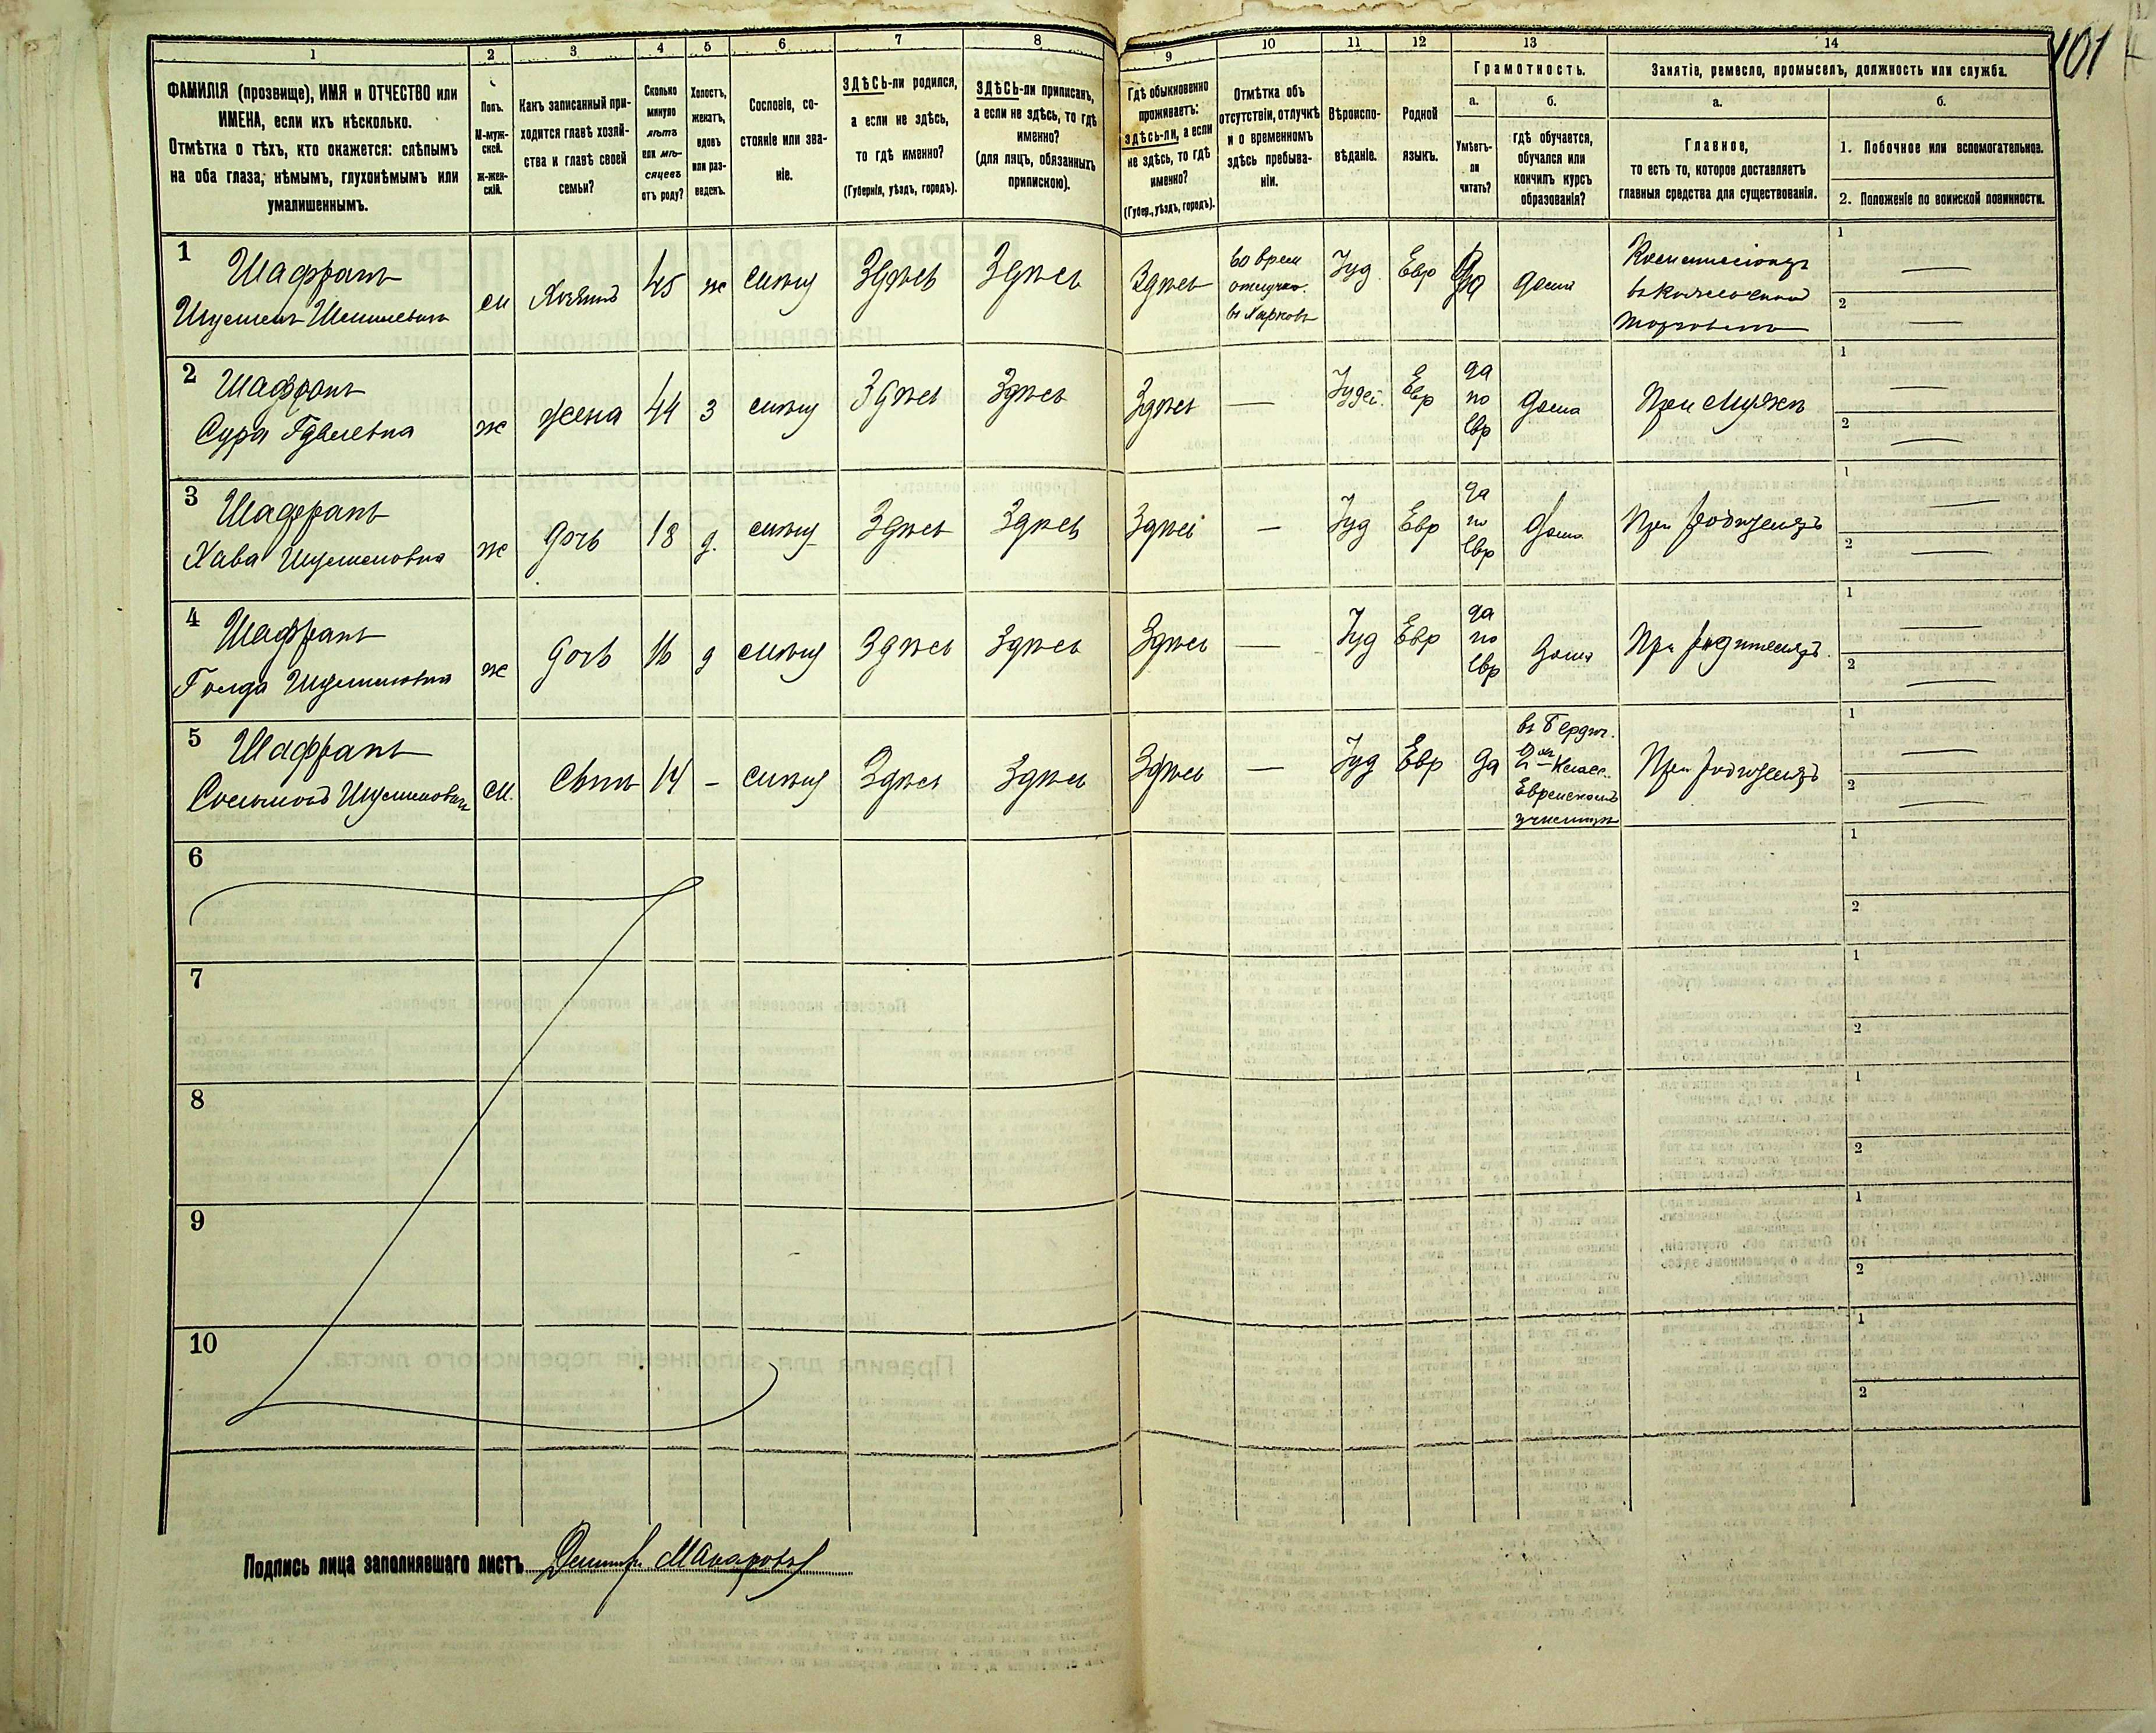 101
1
2
3
4
5
6
7
8
9
10
11
12
13
14
ФАМИЛІЯ (прозвище), ИМЯ и ОТЧЕСТВО или
ИМЕНА, если ихъ нѣсколько.
Отмѣтка о тѣхъ, кто окажется: слѣпымъ
на оба глаза, нѣмымъ, глухонѣмымъ или
умалишеннымъ.
Полъ.
М-муж-
ской.
Ж-жен-
скій.
Какъ записанный при-
ходится главѣ хозяй-
ства и главѣ своей
семьи?
Сколько
минуло
лѣтъ
или мѣ-
сяцевъ
отъ роду?
Холостъ,
женатъ,
вдовъ
или раз-
веденъ.
Сословіе, со-
стояніе или зва-
ніе.
ЗДѢСЬ-ли родился,
а если не здѣсь,
то гдѣ именно?
(Губернія, уѣздъ, городъ).
ЗДѢСЬ-ли приписанъ,
а если не здѣсь, то гдѣ
именно?
(для лицъ, обязанныхъ
припискою).
Гдѣ обыкновенно
проживаетъ:
здѣсь-ли, а если
не здѣсь, то гдѣ
именно?
(Губер., уѣздъ, городъ).
Отмѣтка объ
отсутствіи, отлучкѣ
и о временномъ
здѣсь пребыва-
ніи.
Вѣроиспо-
вѣданіе.
Родной
языкъ.
Грамотность.
а.
б.
Умѣетъ-
ли
читать?
гдѣ обучается,
обучался или
кончилъ курсъ
образованія?
Занятіе, ремесло, промыселъ, должность или служба.
а.
б.
Главное,
то есть то, которое доставляетъ
главныя средства для существованія.
1. Побочное или вспомогательное.
2. Положеніе по воинской повинности.
1
Шафранъ
м
Хозяинъ
45
ж
Здѣсь
Здѣсь
Здѣсь
во врем
отлучке
въ Харковъ
Іуд.
Евр
Да
дома
1
2
2
Шафранъ
Сура
ж
жена
44
з
Здѣсь
Здѣсь
Здѣсь
—
Іудей.
Евр
да
по
Евр
дома
При мужѣ
1
2
3
Шафранъ
Хава
ж
дочь
18
д.
Здѣсь
Здѣсь
Здѣсь
—
Іуд
Евр
да
по
Евр
дома
При родителяхъ
1
2
4
Шафранъ
Голда
ж
дочь
16
д
Здѣсь
Здѣсь
Здѣсь
—
Іуд
Евр
да
по
Евр
дома
При родителяхъ.
1
2
5
Шафранъ
м.
Сынъ
14
-
Здѣсь
Здѣсь
Здѣсь
—
Іуд
Евр
да
въ Бердич.
2хъ Класс.
Еврейскомъ
училищѣ
При родителяхъ
1
2
6
1
2
7
1
2
8
1
2
9
1
2
10
1
2
Подпись лица заполнявшаго листъ